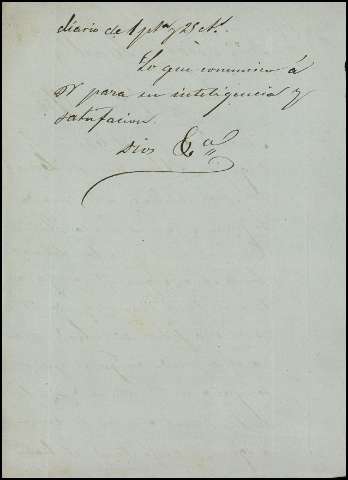 diario de 1 pta y 25 cts.
Lo que comunico á
V para su inteligencia y
satisfacion.
Dios &a